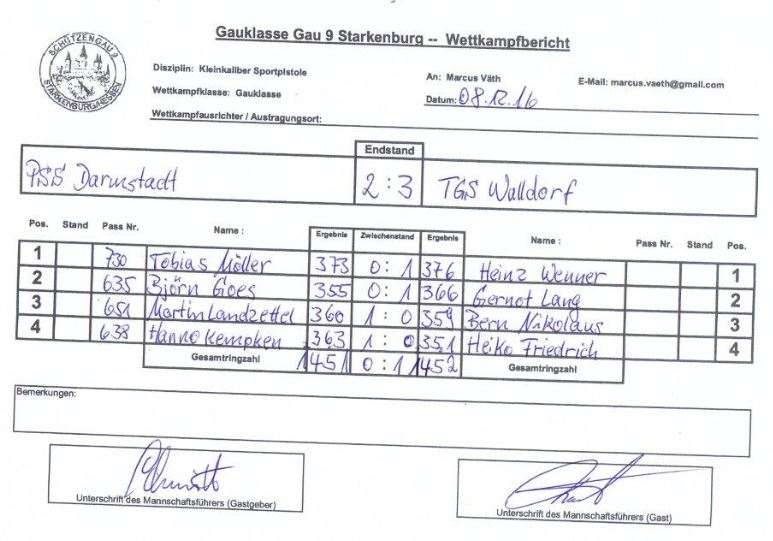 Gauklasse Gau 9 Starkenburg -- Wettkampfbericht
SCHÜTZENGAU 9
STARKENBURG/HESSEN
Disziplin: Kleinkaliber Sportpistole
An: Marcus Väth
E-Mail: marcus.vaeth@gmail.com
Wettkampfklasse: Gauklasse
Datum: 08.12.16
Wettkampfausrichter / Austragungsort:
Endstand
PSS Darmstadt 2 : 3 TGS Walldorf
Pos. Stand Pass Nr. Name : Ergebnis Zwischenstand Ergebnis Name : Pass Nr. Stand Pos.
1 730 Tobias Möller 373 0 : 1 376 Heinz Wenner 1
2 635 Björn Goes 355 0 : 1 366 Gernot Lang 2
3 651 Martin Landzettel 360 1 : 0 359 Bern Nikolaus 3
4 638 Hanno Kempken 363 1 : 0 351 Heiko Friedrich 4
Gesamtringzahl 1451 0 : 1 1452 Gesamtringzahl
Bemerkungen:
Unterschrift des Mannschaftsführers (Gastgeber)
Unterschrift des Mannschaftsführers (Gast)